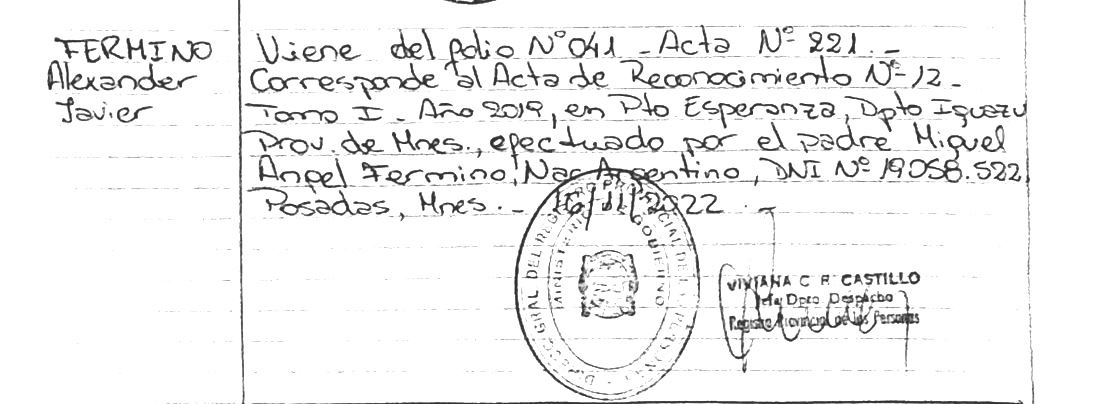 FERMINO
Alexander
Javier
Viene del folio Nº 041 - Acta Nº 221.-
Corresponde al Acta de Reconocimiento Nº 12-
Tomo I - Año 2019, en Pto Esperanza, Dpto Iguazu
Prov. de Mnes., efectuado por el padre Miguel
Angel Fermino, Nac Argentino, DNI Nº 19058.522
Posadas, Mnes.- 16/11/2022.-
DEL REGISTRO PROVINCIAL DE
MINISTERIO DE GOBIERNO
VIVIANA C R CASTILLO
Jefa Dpto Despacho
Registro Provincial de las Personas